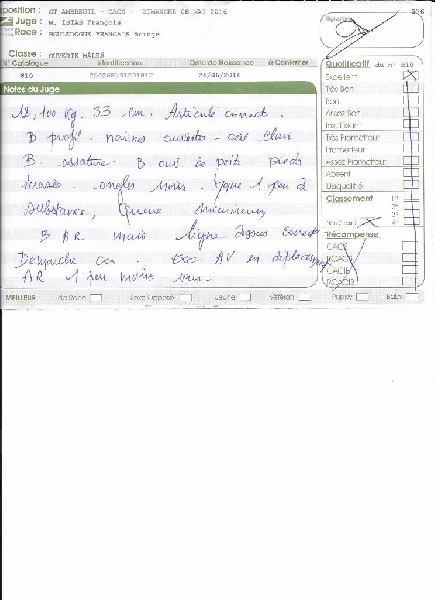 position : ST AMBREUIL - CACS - DIMANCHE 08 MAI 2016
Juge : M. ISTAS François
Race : BOULEDOGUE FRANCAIS Bringé
Classe : OUVERTE MÂLES
N° Catalogue Identification Date de Naissance à Confirmer
810
Notes du Juge
12,100 kg. 33 cm. Articulé correct.
B profil. narines ouvertes - oeil clair
B ossature. B ouv de poitr pieds
ongles noirs. 1 peu de
substance, queue
B AR mais ligne dessus
Démarche exc AV en déplacement
AR 1 peu moins
Signature
Qualificatif du n° 810
Excellent
Très Bon
Bon
Assez Bon
Insuffisant
Très Prometteur
Prometteur
Assez Prometteur
Absent
Disqualifié
Classement 1er
2e
3e
Non Classé 4e
Récompense
CACS
RCACS
CACIB
RCACIB
MEILLEUR de Race Sexe Opposé Jeune Vétéran Puppy Baby